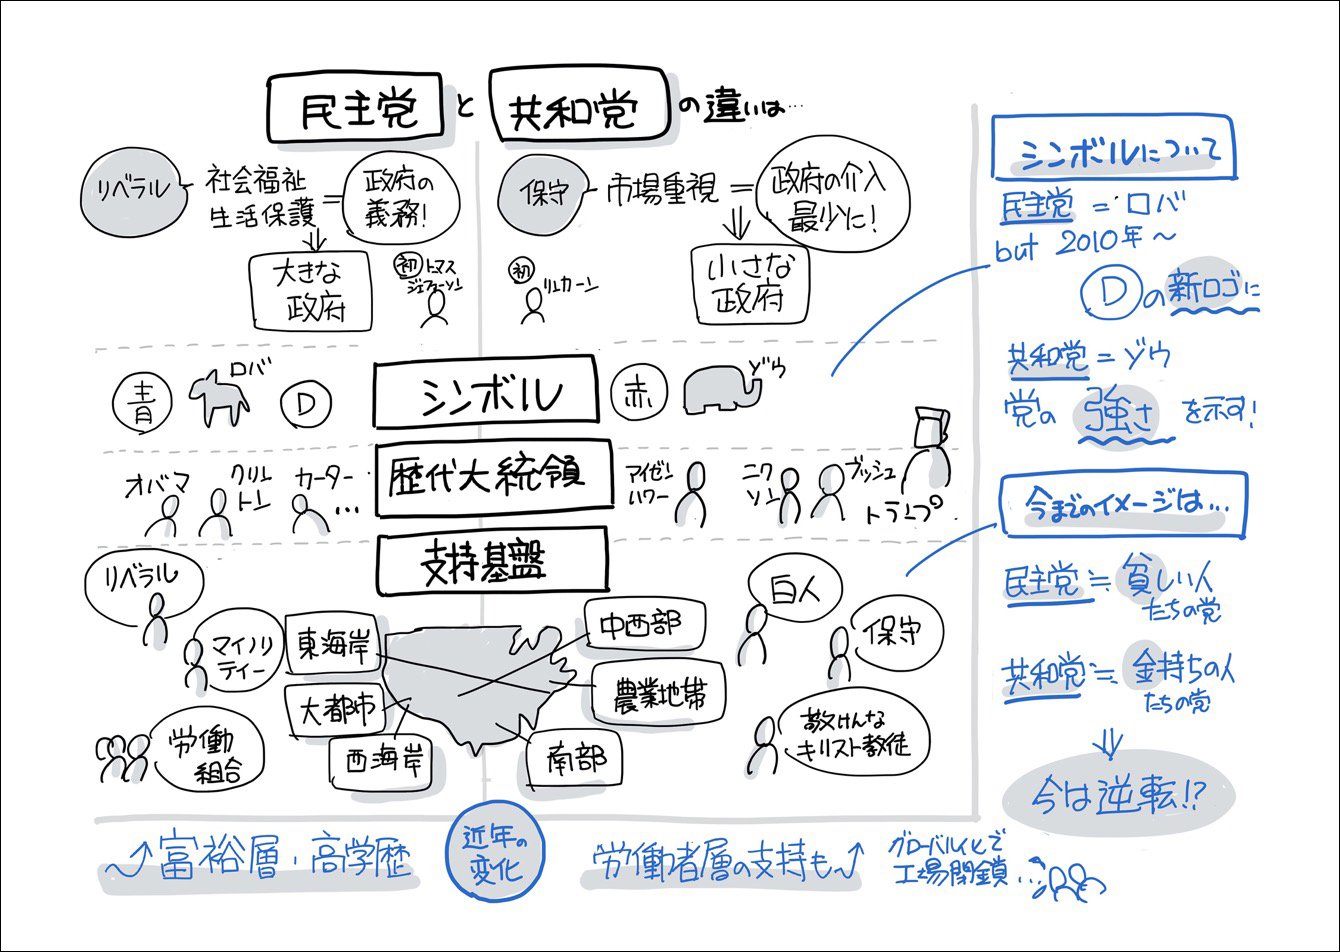 民主党 と 共和党 の違いは…
リベラル
社会福祉
生活保護
=
政府の
義務!
大きな
政府
初 トマス
ジェファーソン
保守
市場重視 =
政府の介入
最少に!
初
リンカーン
小さな
政府
青
ロバ
D
シンボル
赤
ゾウ
オバマ
クリン
トン
カーター
…
歴代大統領
アイゼン
ハワー
ニク
ソン
ブッシュ
トランプ
支持基盤
リベラル
マイノリ
ティー
労働
組合
東海岸
大都市
西海岸
中西部
農業地帯
南部
白人
保守
敬けんな
キリスト教徒
富裕層・高学歴
近年の
変化
労働者層の支持も
グローバル化で
工場閉鎖…
シンボルについて
民主党 = ロバ
but 2010年〜
Dの新ロゴに
共和党 = ゾウ
党の 強さ を示す!
今までのイメージは…
民主党 ≒ 貧しい人
たちの党
共和党 ≒ 金持ちの人
たちの党
今は逆転!?